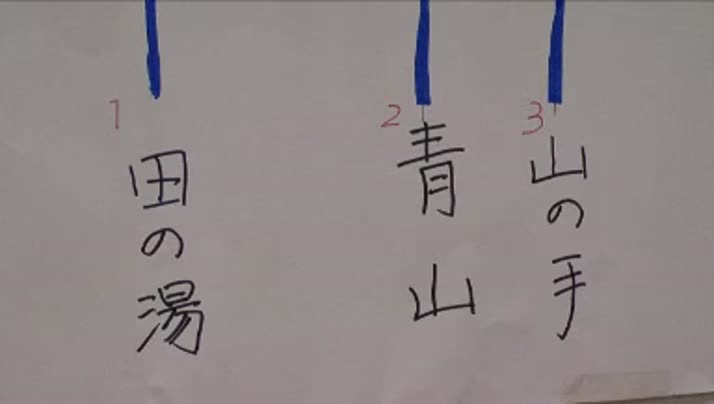 1
田の湯
2
青山
3
山の手